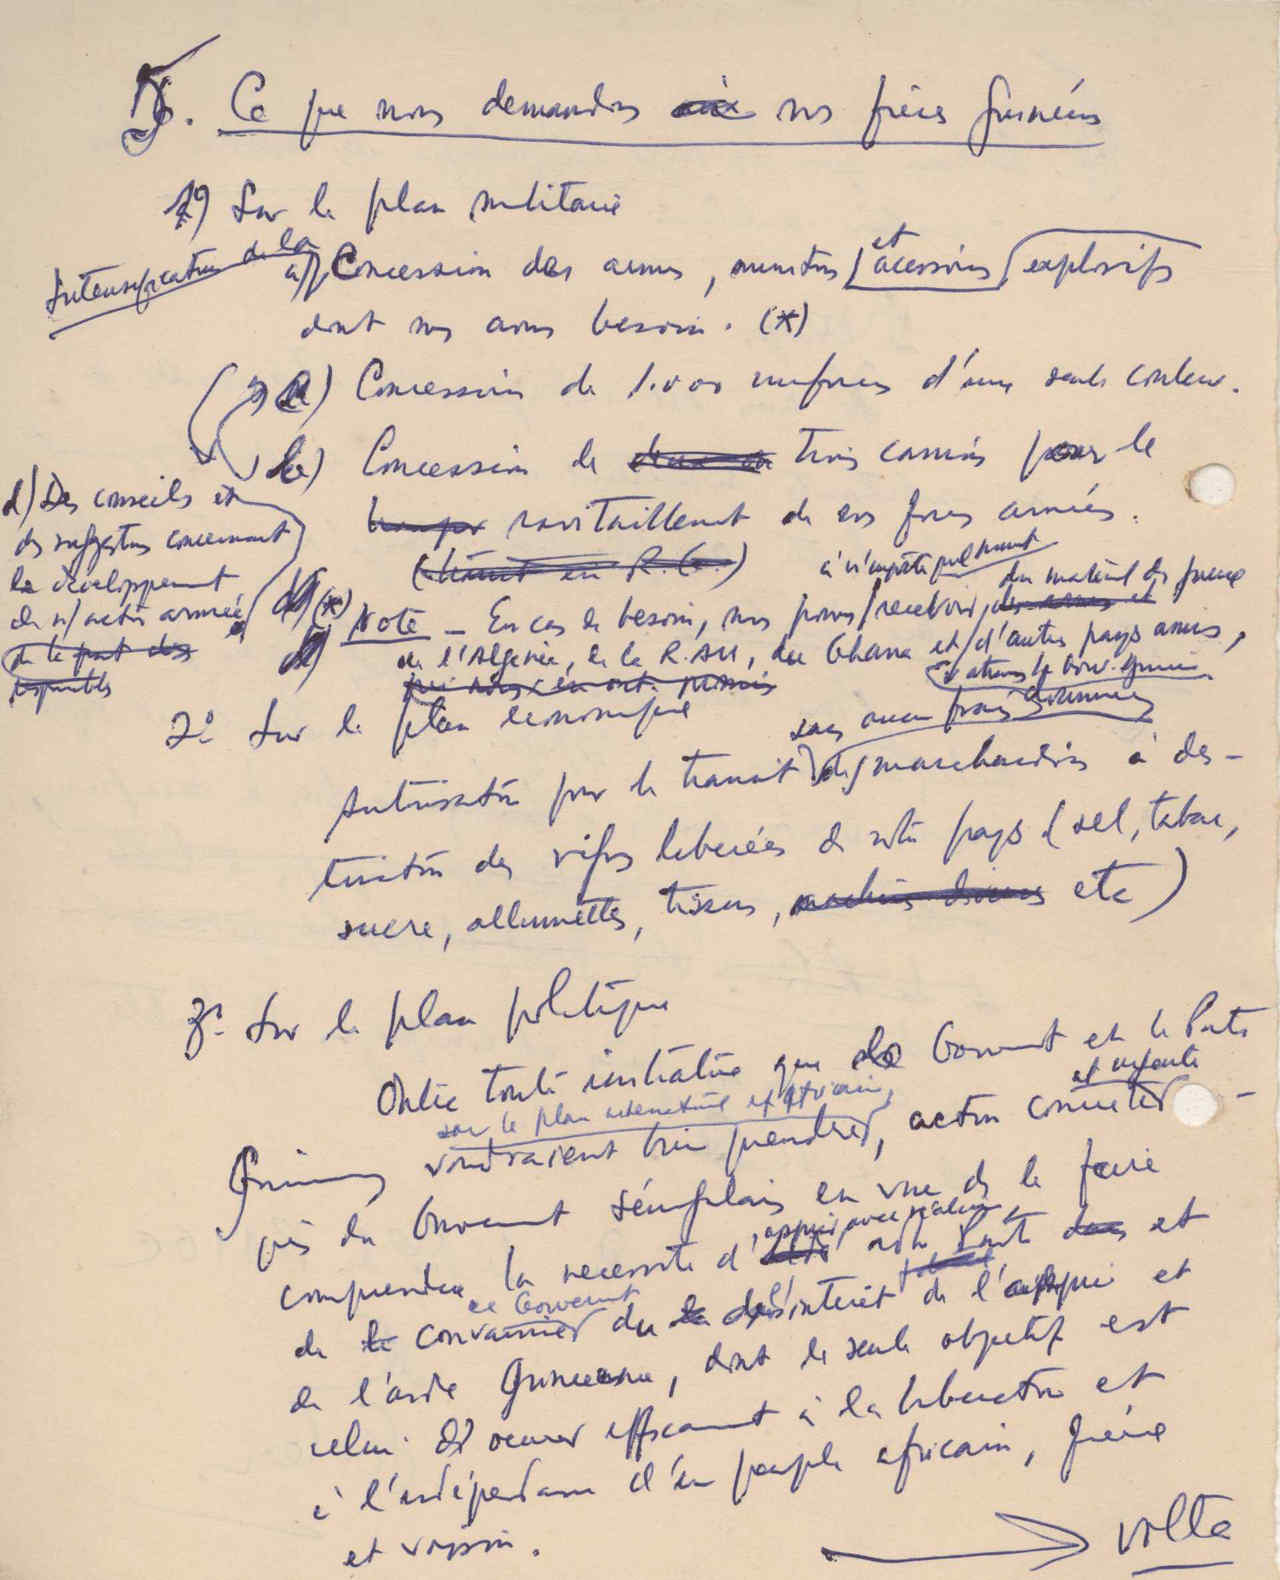 5. Ce que nous demandons aux nos frères guinéens
1º) Sur le plan militaire
Intensification de la
a) Concession des armes, munitions et accessoires explosifs
dont nous avons besoin. (*)
a) Concession de 1.000 uniformes d'une seule couleur.
b) Concession de trois camions pour le
ravitaillement de nos forces armées.
(étant en R.G.)
d) Des conseils et
des suggestions concernant
le développement
de n/ action armée
de la part des
responsables
(*) Note - En cas de besoin, nous pouvons recevoir, à n'importe quel moment du matériel de guerre
de l'Algérie, de la R.AU, du Ghana et d'autres pays amis,
à travers le Gouv. guinéen
qui nous en ont promis
2º Sur le plan économique
sans aucun frais douanier
Autorisation pour le transit des marchandises à des-
tination des régions liberées de notre pays (sel, tabac,
sucre, allumettes, tissus, etc)
3º Sur le plan politique
Outre toute initiative que le Gouvernement et le Parti
sur le plan international et africain, et urgente
Guinéens voudraient bien prendre, action concrète -
près du Gouvernement sénégalais en vue de le faire
comprendre la necessité d'appui avec notre Parti et
de convaincre ce Gouvernement du désintérêt total de l'appui et
de l'aide Guinéenne, dont le seule objectif est
celui d'oeuvrer efficacement à la liberation et
à l'indépendance d'un peuple africain, frère
et voisin.
→ volta